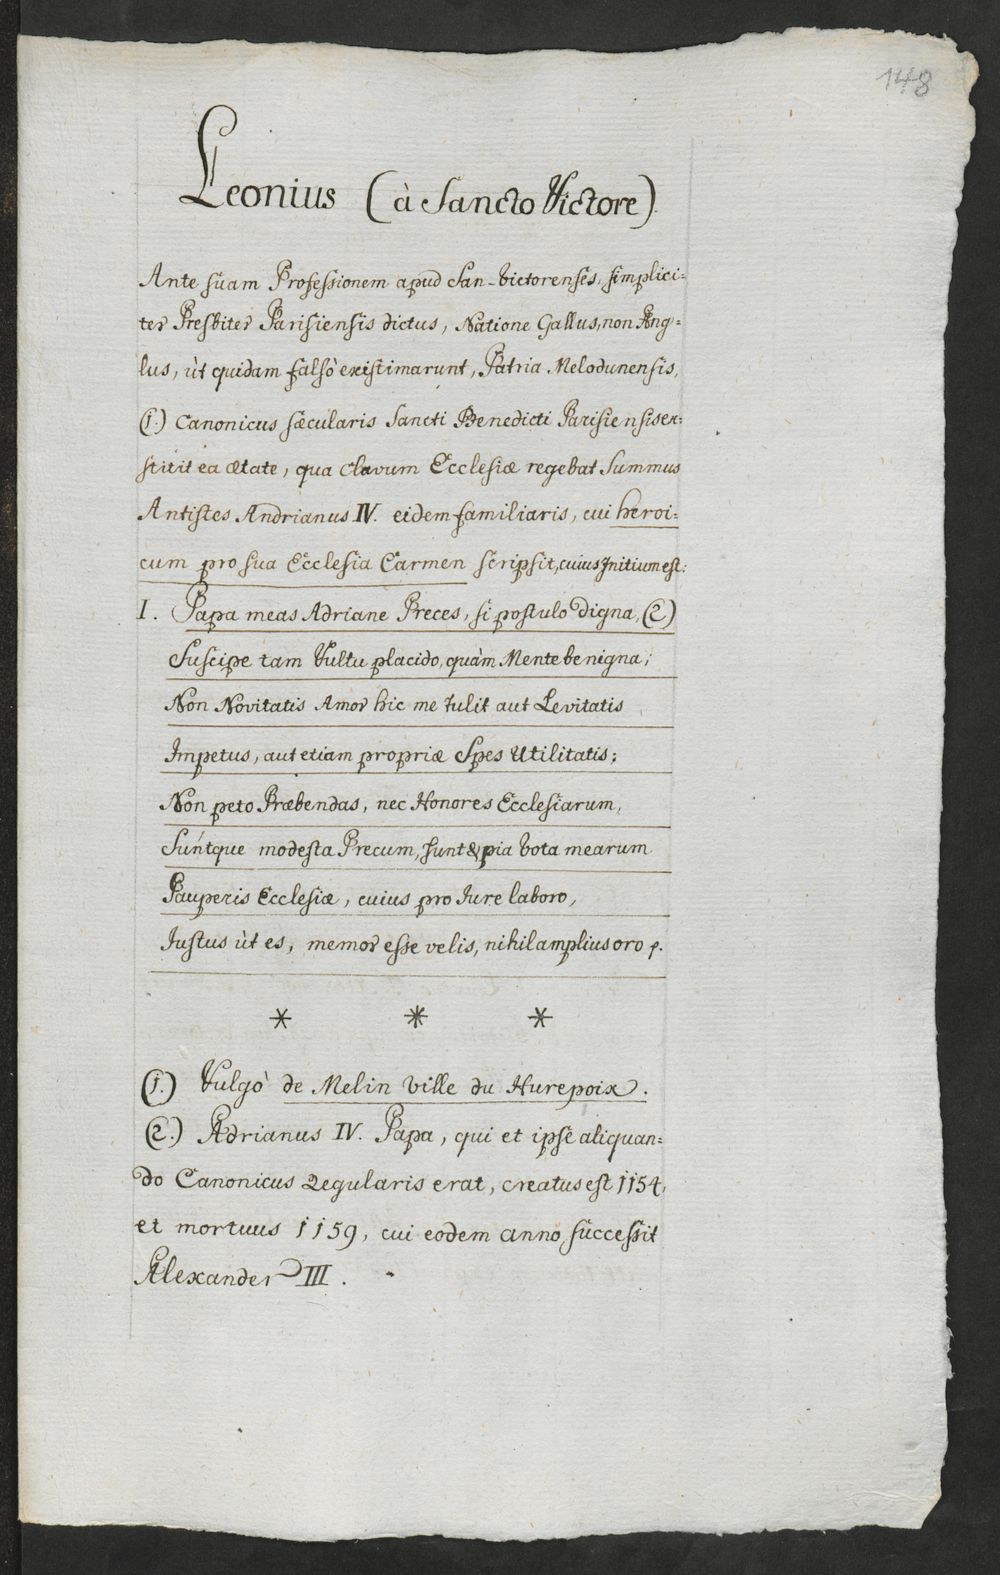 148
Leonius (à Sancto Victore).
Ante suam Professionem apud San-Victorenses, simplici=
ter Presbiter Parisiensis dictus, Natione Gallus, non Ang=
lus, ùt quidam falsò existimarunt, Patria Melodunensis,
(1.) Canonicus sæcularis Sancti Benedicti Parisiensis ex=
stitit ea ætate, qua clavum Ecclesiæ regebat Summus
Antistes Andrianus IV. eidem familiaris, cui heroi=
cum pro sua Ecclesia Carmen scripsit, cuius Initium est:
I. Papa meas Adriane Preces, si postulo digna, (2)
Suscipe tam Vultu placido, quàm Mente benigna;
Non Novitatis Amor hic me tulit aut Levitatis
Impetus, aut etiam propriæ Spes Utilitatis;
Non peto Præbendas, nec Honores Ecclesiarum,
Suntque modesta Precum, sunt & pia Vota mearum
Pauperis Ecclesiæ, cuius pro Iure laboro,
Iustus ùt es, memor esse velis, nihil amplius oro p.
* * *
(1.) Vulgò de Melin Ville du Hurepoix.
(2.) Adrianus IV. Papa, qui et ipse aliquan=
do Canonicus Regularis erat, creatus est 1154,
et mortuus 1159, cui eodem anno successit
Alexander III.